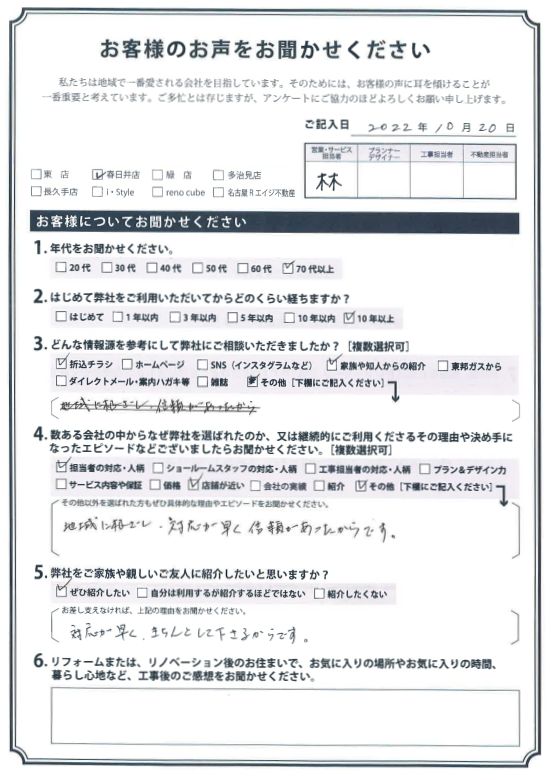 お客様のお声をお聞かせください
私たちは地域で一番愛される会社を目指しています。そのためには、お客様の声に耳を傾けることが
一番重要と考えています。ご多忙とは存じますが、アンケートにご協力のほどよろしくお願い申し上げます。
ご記入日 2022 年 10 月 20 日
営業・サービス担当者 プランナーデザイナー 工事担当者 不動産担当者
林
□東 店 ☑春日井店 □緑 店 □多治見店
□長久手店 □i・Style □reno cube □名古屋Rエイジ不動産
お客様についてお聞かせください
1. 年代をお聞かせください。
□20代 □30代 □40代 □50代 □60代 ☑70代以上
2. はじめて弊社をご利用いただいてからどのくらい経ちますか？
□はじめて □1年以内 □3年以内 □5年以内 □10年以内 ☑10年以上
3. どんな情報源を参考にして弊社にご相談いただきましたか？［複数選択可］
☑折込チラシ □ホームページ □SNS（インスタグラムなど） ☑家族や知人からの紹介 □東邦ガスから
□ダイレクトメール・案内ハガキ等 □雑誌 ■その他［下欄にご記入ください］
地域に根ざし、信頼があったから
4. 数ある会社の中からなぜ弊社を選ばれたのか、又は継続的にご利用くださるその理由や決め手に
なったエピソードなどございましたらお聞かせください。［複数選択可］
☑担当者の対応・人柄 □ショールームスタッフの対応・人柄 □工事担当者の対応・人柄 □プラン＆デザイン力
□サービス内容や保証 □価格 ☑店舗が近い □会社の実績 □紹介 ☑その他［下欄にご記入ください］
その他以外を選ばれた方もぜひ具体的な理由やエピソードをお聞かせください。
地域に根ざし、対応が早く信頼があったからです。
5. 弊社をご家族や親しいご友人に紹介したいと思いますか？
☑ぜひ紹介したい □自分は利用するが紹介するほどではない □紹介したくない
お差し支えなければ、上記の理由をお聞かせください。
対応が早く、きちんとして下さるからです。
6. リフォームまたは、リノベーション後のお住まいで、お気に入りの場所やお気に入りの時間、
暮らし心地など、工事後のご感想をお聞かせください。